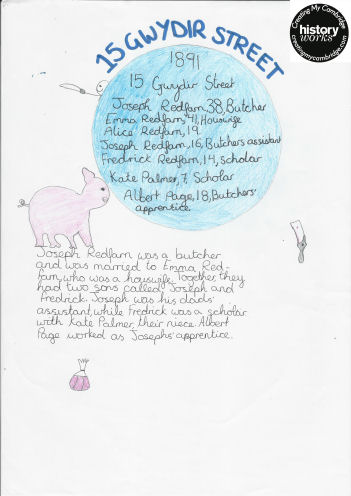 15 GWYDIR STREET
Creating My Cambridge
history
works
creatingmycambridge.com
1891
15 Gwydir Street
Joseph Redfarn, 38, Butcher
Emma Redfarn, 41, Houswife
Alice Redfarn, 19.
Joseph Redfarn, 16, Butchers assistant
Fredrick Redfarn, 14, Scholar
Kate Palmer, 7, Scholar
Albert Page, 18, Butchers'
apprentice.
Joseph Redfarn was a butcher
and was married to Emma Red-
farn, who was a housewife. Together they
had two sons called: Joseph and
Fredrick. Joseph was his dads'
assistant, while Fredrick was a scholar
with Kate Palmer, their niece. Albert
Page worked as Josephs' apprentice.